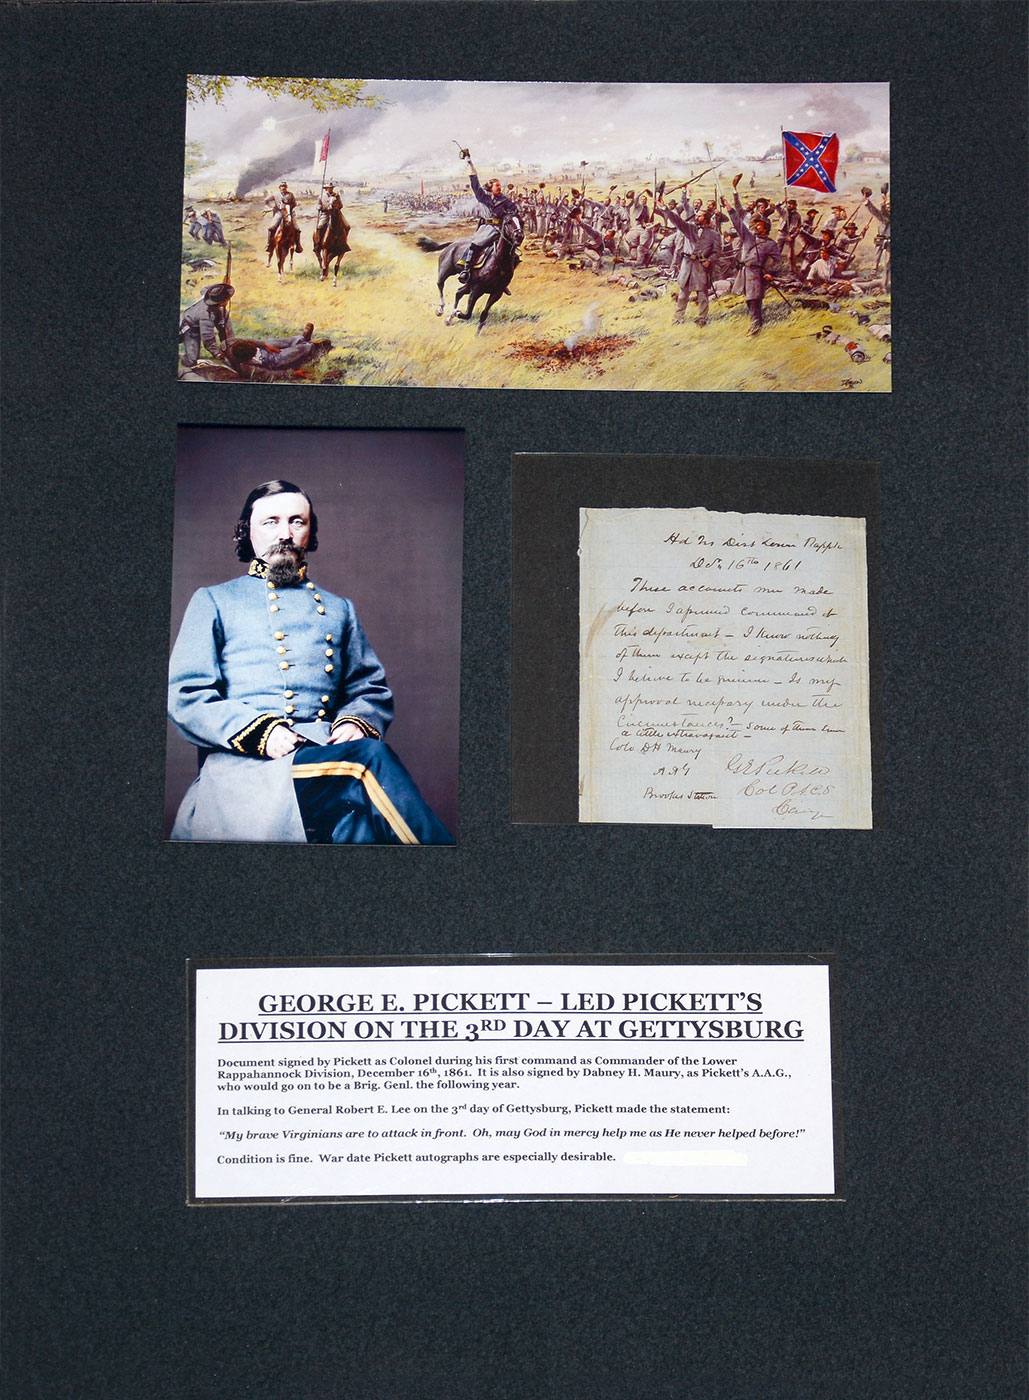 Hd Qrs Dist Lower Rappk
Dec 16th 1861
These accounts were made
before I assumed command of
this department – I know nothing
of them except the signatures which
I believe to be genuine – Is my
approval necessary under the
Circumstances? – Some of them
a little extravagant –
Colo DH Maury
A A G
GEPickett
Col P.A.C.S
Brookes Station
GEORGE E. PICKETT – LED PICKETT'S
DIVISION ON THE 3RD DAY AT GETTYSBURG
Document signed by Pickett as Colonel during his first command as Commander of the Lower
Rappahannock Division, December 16th, 1861. It is also signed by Dabney H. Maury, as Pickett's A.A.G.,
who would go on to be a Brig. Genl. the following year.
In talking to General Robert E. Lee on the 3rd day of Gettysburg, Pickett made the statement:
"My brave Virginians are to attack in front. Oh, may God in mercy help me as He never helped before!"
Condition is fine. War date Pickett autographs are especially desirable.